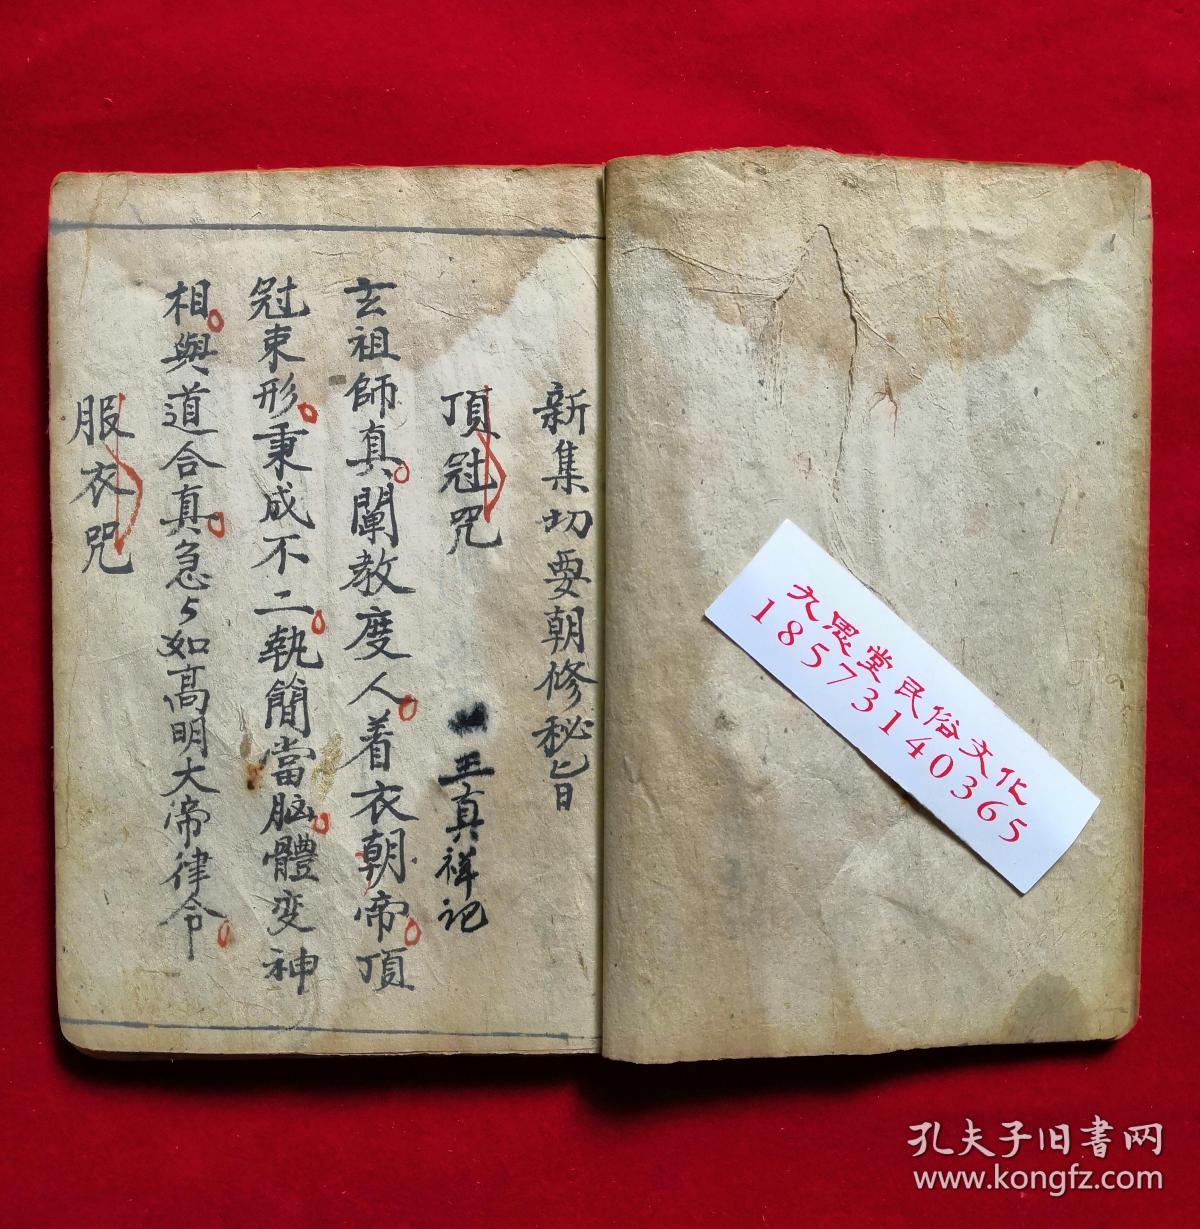 新集切要朝修秘旨
頂冠咒
王真祥记
玄祖師真闡教度人着衣朝帝頂
冠束形秉成不二執簡當脳體变神
相與道合真急々如高明大帝律令
服衣咒
九思堂民俗文化
18573140365
孔夫子旧書网
www.kongfz.com